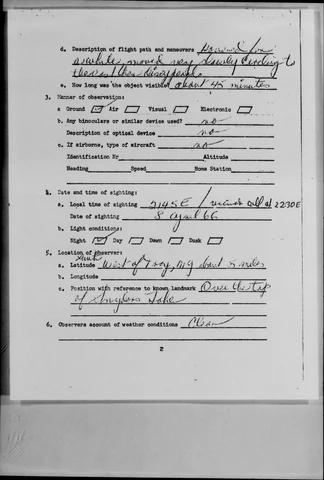 d. Description of flight path and maneuvers Hovered for
a while moved very slowly heading to
the west then disappeared
e. How long was the object visible about 45 minutes
3. Manner of observation:
a Ground ✓ Air Visual Electronic
b. Any binoculars or similar device used? no
Description of optical device no
c. If airborne, type of aircraft no
Identification Nr Altitude
Heading Speed Home Station
4. Date and time of sighting:
a. Local time of sighting 2145E / call at 2230E
Date of sighting 8 April 66
b. Light conditions:
Night ✓ Day Dawn Dusk
5. Location of observer:
South
a. Latitude West of Troy, about 5 miles
b. Longitude
c. Position with reference to known landmark Over the top
of Lake
6. Observers account of weather conditions Clear
2